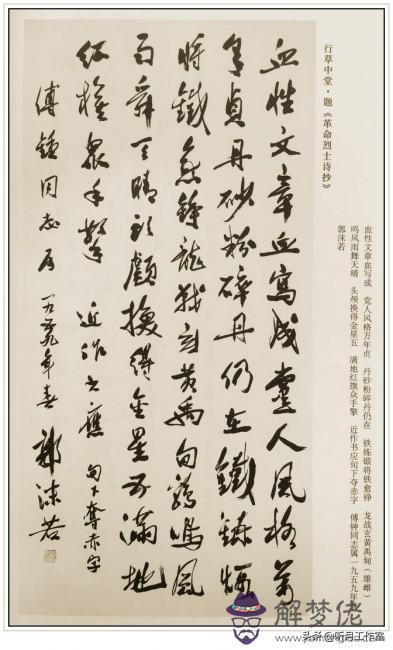 行草中堂·题《革命烈士诗抄》
血性文章血写成 党人风格万年贞 丹砂粉碎丹仍在 铁炼锻将铁愈铮 龙战玄黄禹甸（雄雌）
鸣风雨舞天晴 头颅换得金星五 满地红旗众手擎 近作书应句下夺赤字 傅钟同志属一九五九年
郭沫若
血性文章血寫成黨人風格萬
年貞丹砂粉碎丹仍在鐵鍊煅
將鐵愈錚龍戰玄黃禹甸鳴風
雨舞天晴頭顱換得金星五滿地
紅旗眾手擎 近作書應 句下奪赤字
傅鍾同志屬 一九五九年春 郭沫若
解梦佬
头条@听月工作室